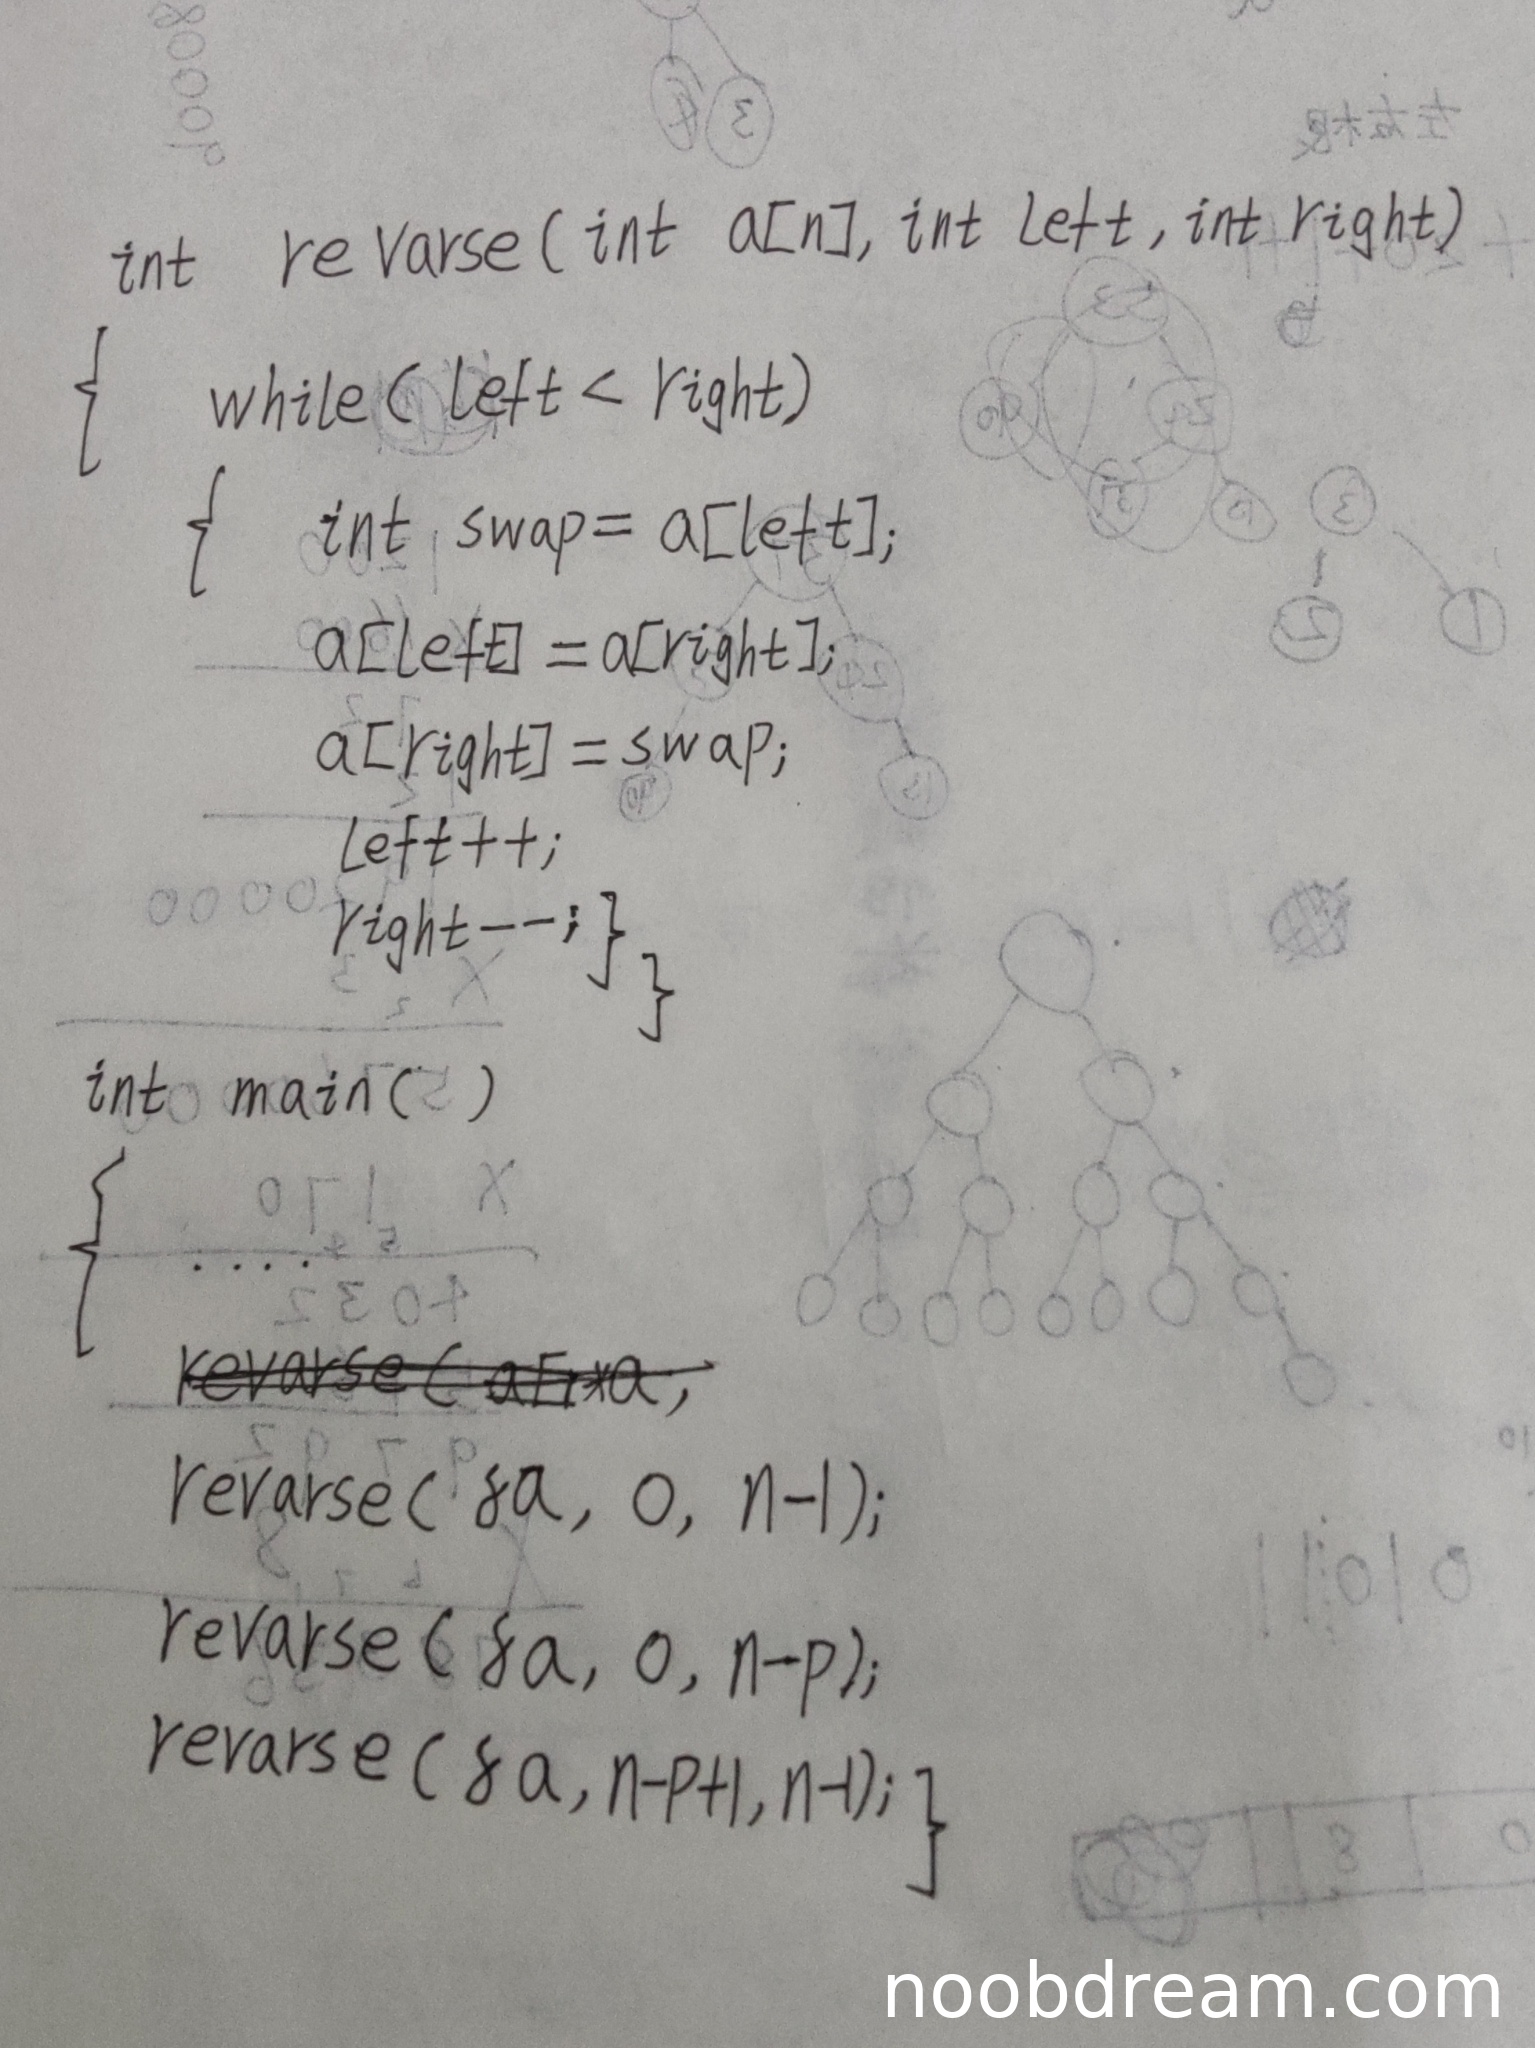 左右根
int revarse(int a[n], int left, int right)
{ while(left < right)
{ int swap = a[left];
a[left] = a[right];
a[right] = swap;
left++;
right--; }
}
int main( )
{
....
revarse(&a, 0, n-1);
revarse(&a, 0, n-p);
revarse(&a, n-p+1, n-1); }
noobdream.com